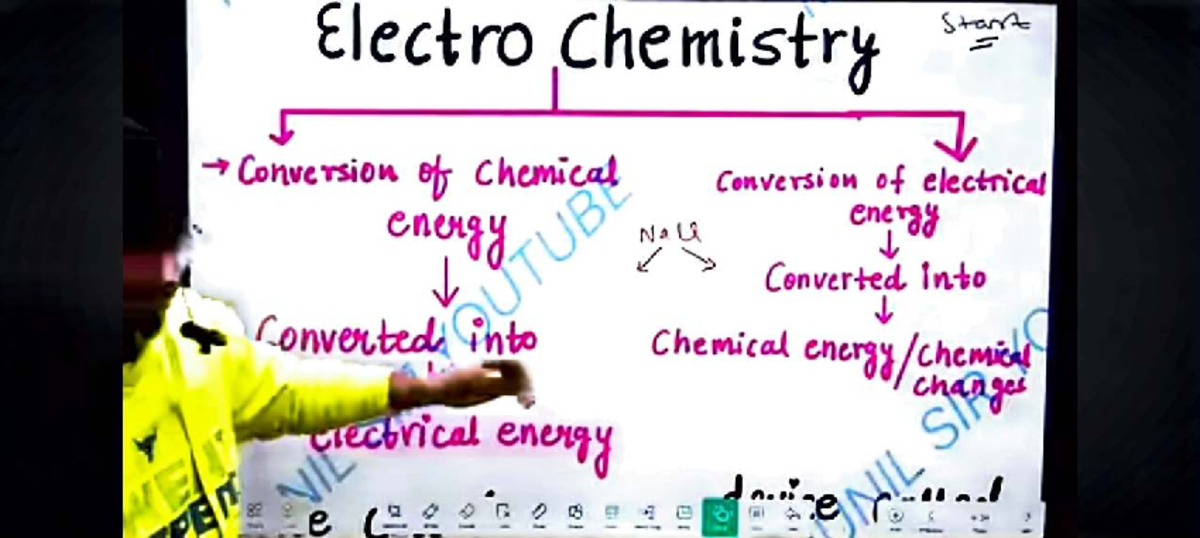 Electro Chemistry
Start
→ Conversion of Chemical
energy
↓
Converted into
Electrical energy
NaCl
Conversion of electrical
energy
↓
Converted into
↓
Chemical energy/Chemical
changes
YOUTUBE